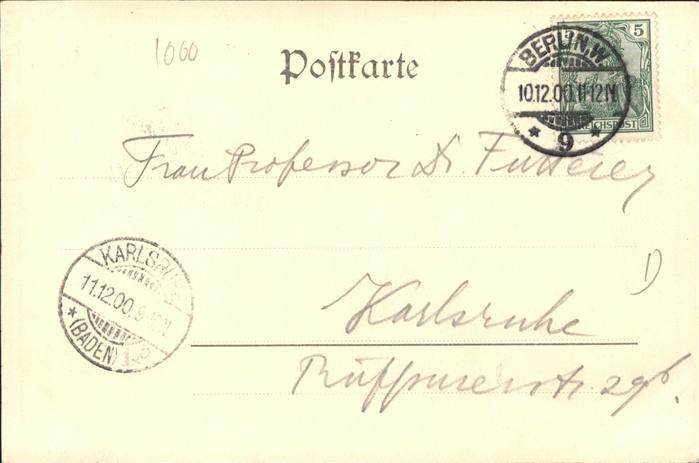 1000
Postkarte
5
REICHSPOST
BERLIN.W.
10.12.00.11-12N.
* 9 *
Frau Professor Dr. Futterer
KARLSRUHE
11.12.00.9-10N.
* (BADEN)
1)
Karlsruhe